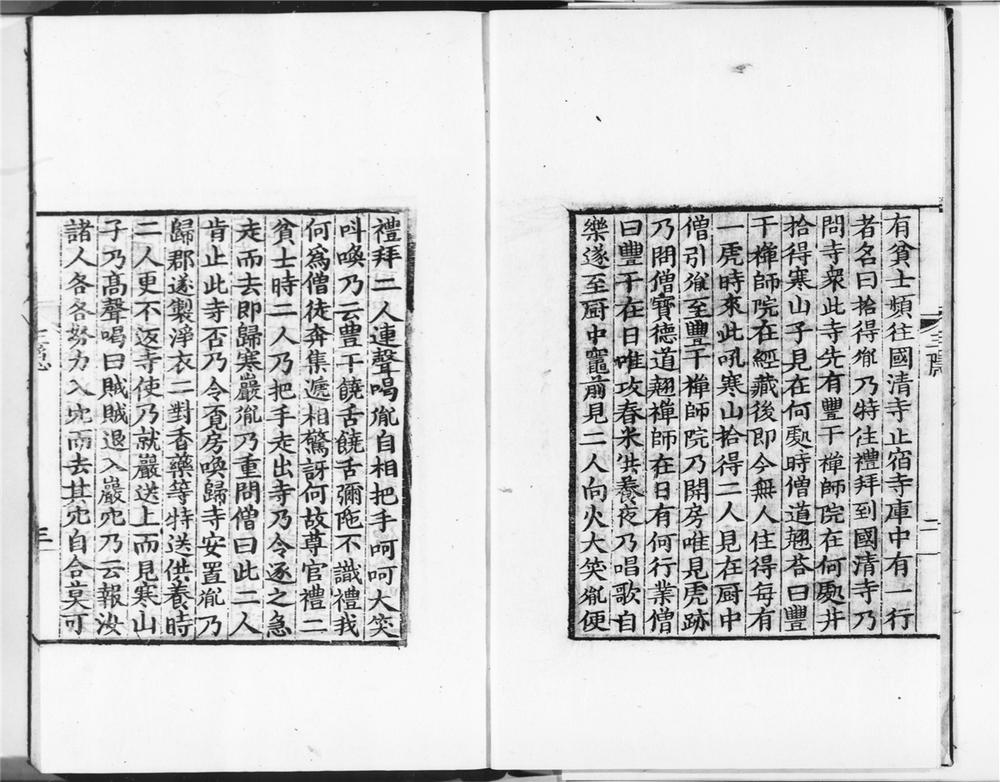 有貧士頻往國清寺止宿寺庫中有一行
者名曰拾得胤乃特往禮拜到國清寺乃
問寺衆此寺先有豐干禪師院在何處并
拾得寒山子見在何處時僧道翹荅曰豐
干禪師院在經藏後即今無人住得每有
一虎時來此吼寒山拾得二人見在厨中
僧引胤至豐干禪師院乃開房唯見虎跡
乃問僧寶德道翹禪師在日有何行業僧
曰豐干在日唯攻舂米供養夜乃唱歌自
樂遂至厨中竈前見二人向火大笑胤便
二
禮拜二人連聲喝胤自相把手呵呵大笑
呌喚乃云豐干饒舌饒舌彌陁不識禮我
何爲僧徒奔集遞相驚訝何故尊官禮二
貧士時二人乃把手走出寺乃令逐之急
走而去即歸寒巖胤乃重問僧曰此二人
肯止此寺否乃令覔房喚歸寺安置胤乃
歸郡遂製淨衣二對香藥等特送供養時
二人更不返寺使乃就巖送上而見寒山
子乃高聲喝曰賊賊退入巖穴乃云報汝
諸人各各努力入穴而去其穴自合莫可
三